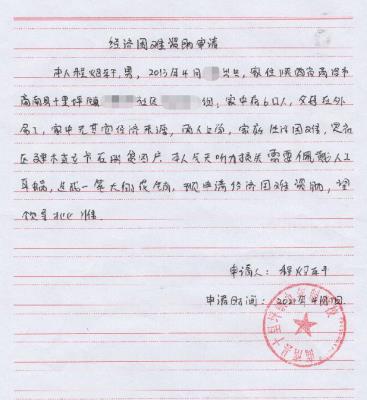 经济困难资助申请
本人程炤平,男,2013年4月 出生,家住陕西省商洛市
商南县十里坪镇 社区 组,家中有6口人,父母在外
务工,家中无其它经济来源,两人上学,家庭经济困难,
区建木立卡在册贫困户,本人先天听力损失需要佩戴人工
耳蜗,造成一笔大的开销,现申请经济困难资助,望
领导批准
申请人:程炤平
申请时间:2021年4月1日
商南县十里坪镇